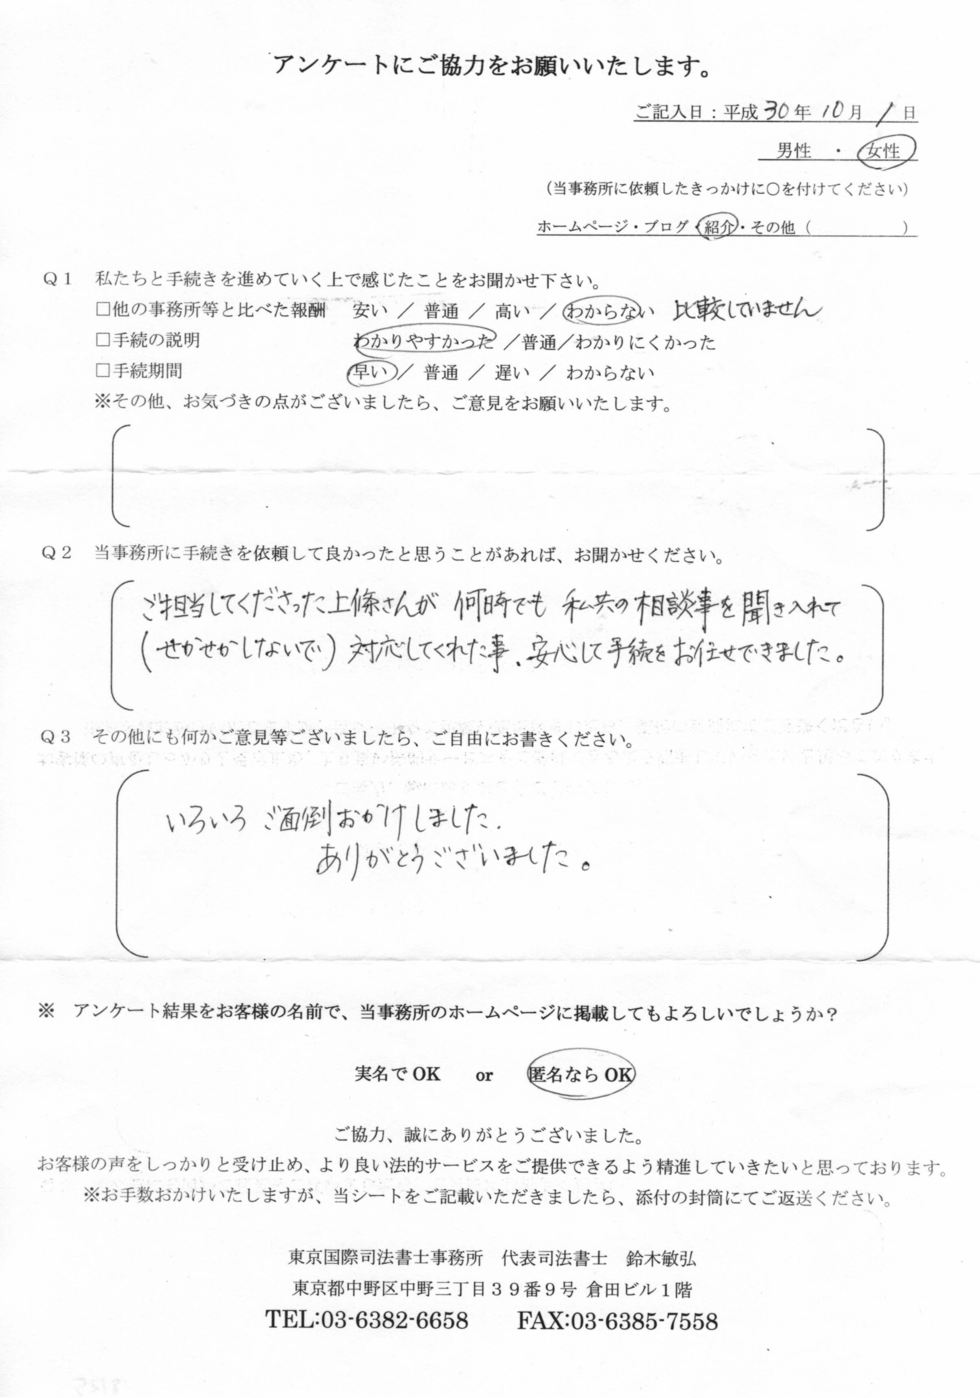 アンケートにご協力をお願いいたします。
ご記入日：平成30年10月1日
男性　・　女性
（当事務所に依頼したきっかけに○を付けてください）
ホームページ・ブログ・紹介・その他（　　　　　）
Ｑ１　私たちと手続きを進めていく上で感じたことをお聞かせ下さい。
□他の事務所等と比べた報酬　安い ／ 普通 ／ 高い ／ わからない　比較していません
□手続の説明　わかりやすかった ／普通／わかりにくかった
□手続期間　早い ／ 普通 ／ 遅い ／ わからない
※その他、お気づきの点がございましたら、ご意見をお願いいたします。
Ｑ２　当事務所に手続きを依頼して良かったと思うことがあれば、お聞かせください。
ご担当してくださった上條さんが 何時でも 私共の相談事を聞き入れて
（せかせかしないで）対応してくれた事、安心して手続をお任せできました。
Ｑ３　その他にも何かご意見等ございましたら、ご自由にお書きください。
いろいろ ご面倒おかけしました.
ありがとうございました。
※　アンケート結果をお客様の名前で、当事務所のホームページに掲載してもよろしいでしょうか？
実名でOK　or　匿名ならOK
ご協力、誠にありがとうございました。
お客様の声をしっかりと受け止め、より良い法的サービスをご提供できるよう精進していきたいと思っております。
※お手数おかけいたしますが、当シートをご記載いただきましたら、添付の封筒にてご返送ください。
東京国際司法書士事務所　代表司法書士　鈴木敏弘
東京都中野区中野三丁目３９番９号 倉田ビル１階
TEL:03-6382-6658　FAX:03-6385-7558